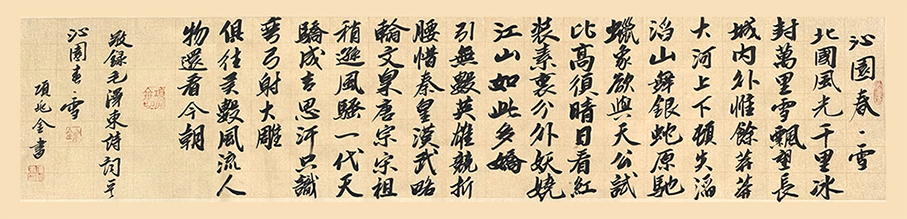 沁園春·雪
北國風光千里冰
封萬里雪飄望長
城內外惟餘莽莽
大河上下頓失滔
滔山舞銀蛇原馳
蠟象欲與天公試
比高須晴日看紅
裝素裹分外妖嬈
江山如此多嬌
引無數英雄競折
腰惜秦皇漢武略
輸文采唐宗宋祖
稍遜風騷一代天
驕成吉思汗只識
彎弓射大雕
俱往矣數風流人
物還看今朝
敬錄毛澤東詩詞
沁園春·雪
項兆金書